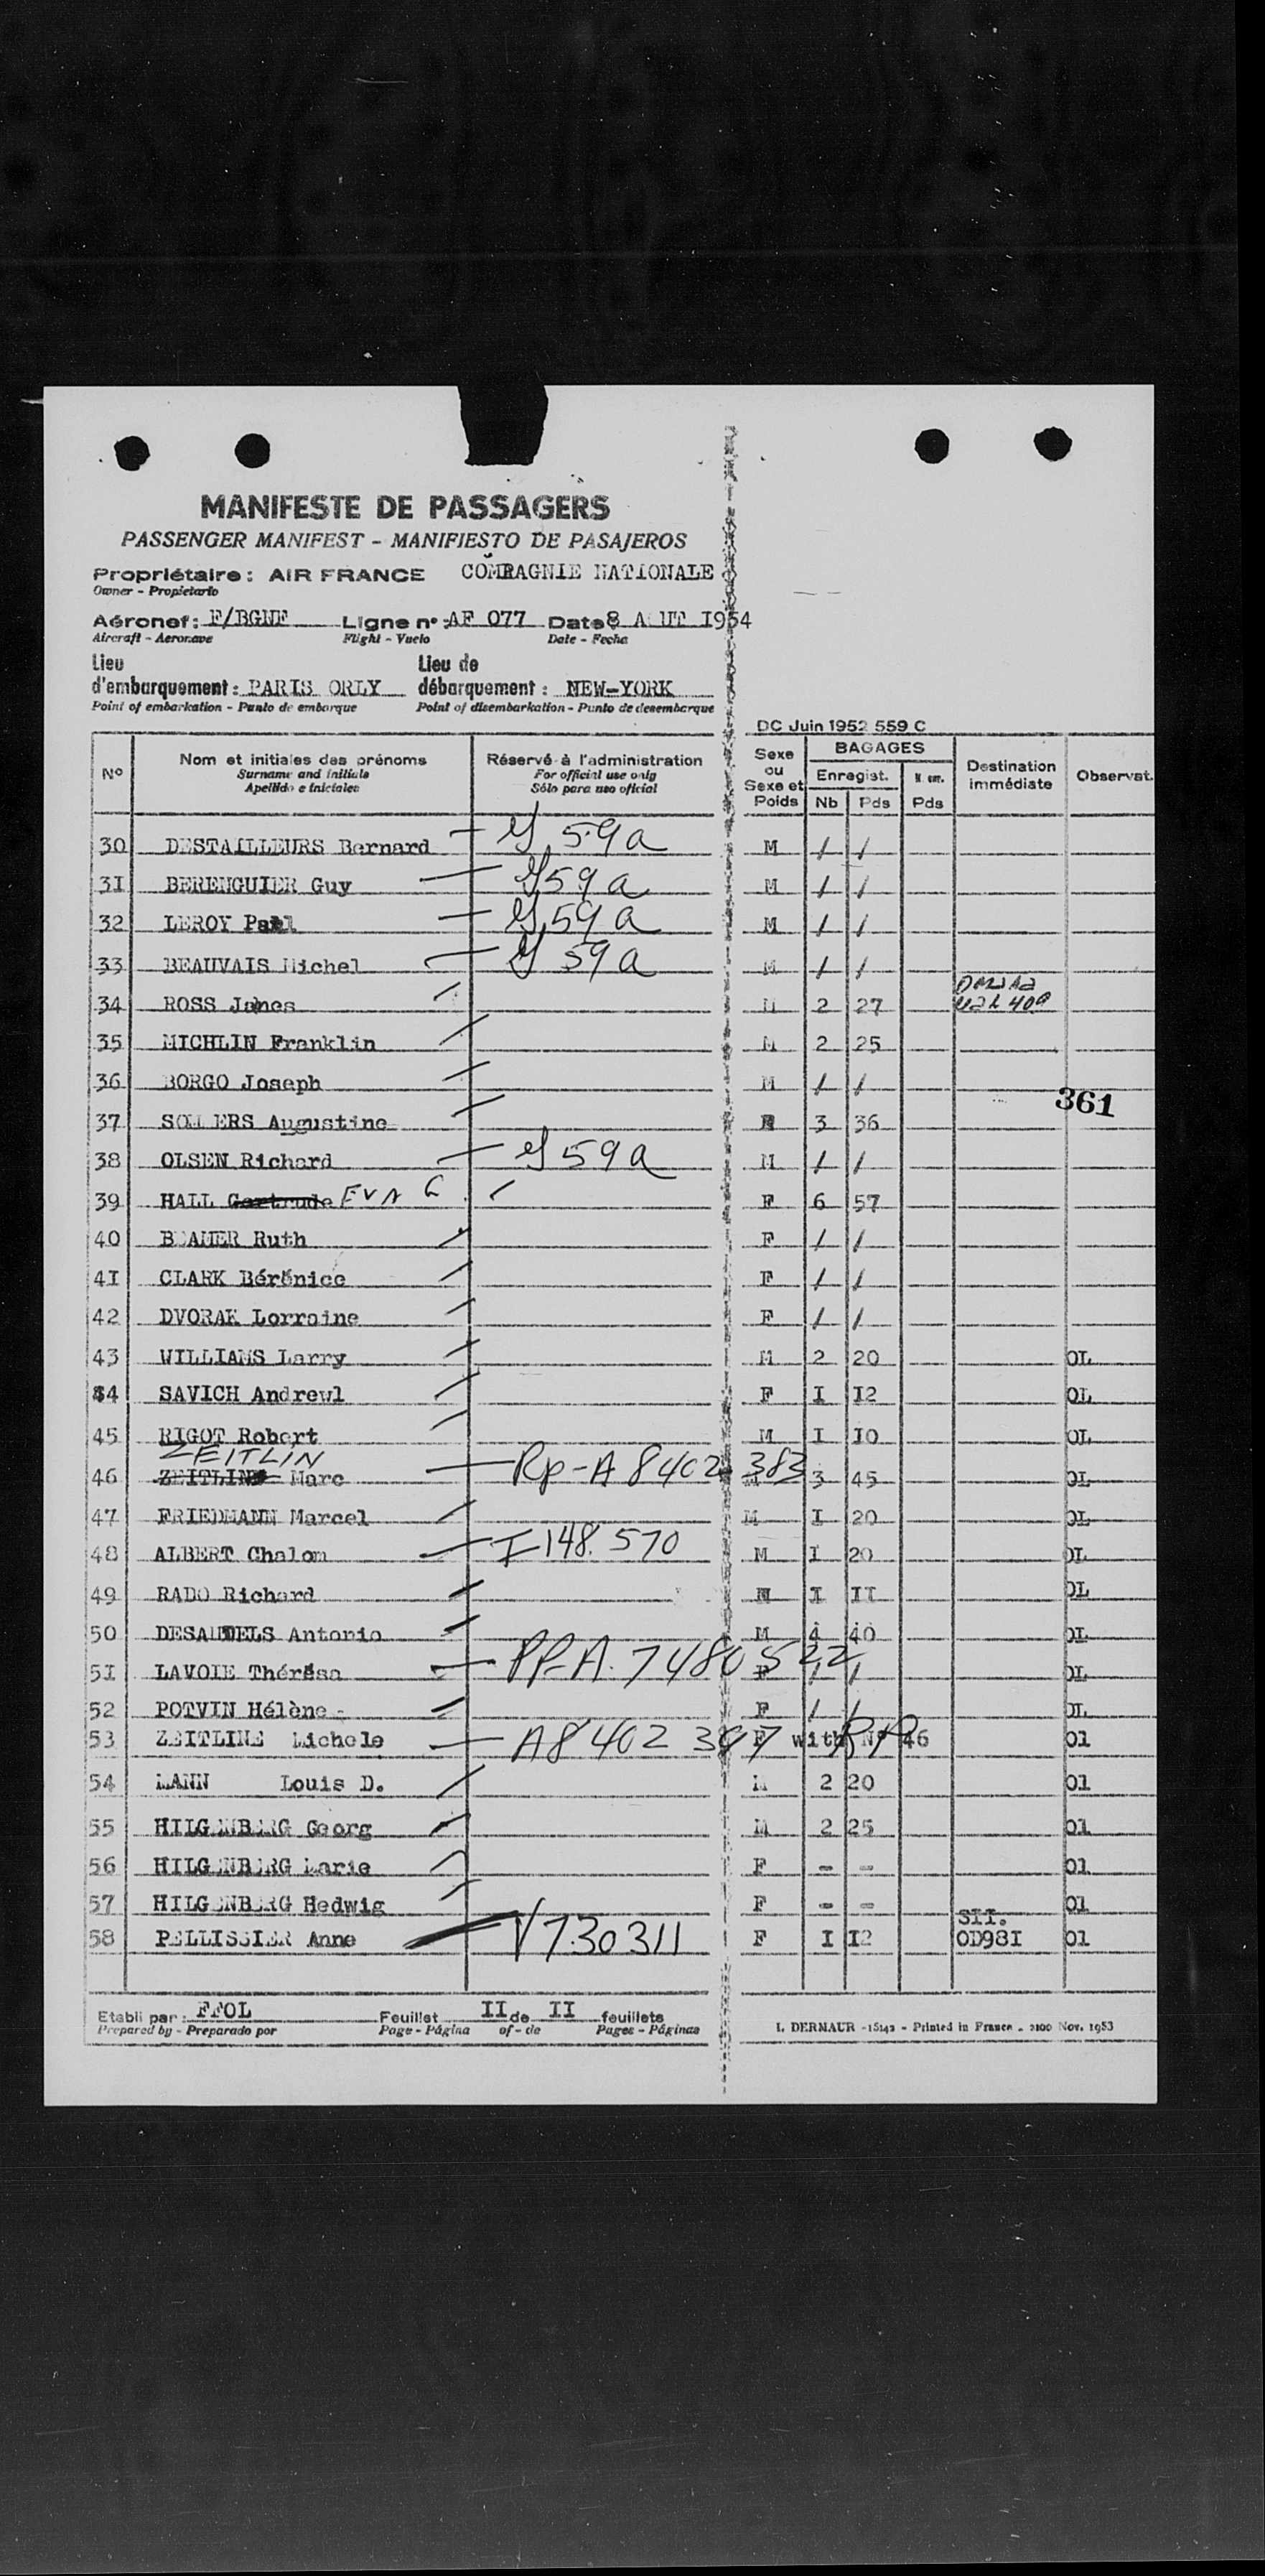 MANIFESTE DE PASSAGERS
PASSENGER MANIFEST - MANIFIESTO DE PASAJEROS
Propriétaire : AIR FRANCE COMPAGNIE NATIONALE
Owner - Propietario
Aéronef : F/BGNF Ligne n° : AF 077 Date 8 A UT 1954
Aircraft - Aeronave Flight - Vuelo Date - Fecha
Lieu Lieu de
d'embarquement : PARIS ORLY débarquement : NEW-YORK
Point of embarkation - Punto de embarque Point of disembarkation - Punto de desembarque
DC Juin 1952 559 C
N° Nom et initiales des prénoms Réservé à l'administration Sexe ou Sexe et Poids BAGAGES Destination immédiate Observat.
Surname and initials For official use only Enregist. N. enr.
Apellido e iniciales Sólo para uso oficial Nb Pds Pds
30 DESTAILLEURS Bernard — 59a M / /
31 BERENGUIER Guy — 59a M / /
32 LEROY Paul — 59a M / /
33 BEAUVAIS Michel — 59a M / /
34 ROSS James / M 2 27
35 MICHLIN Franklin / M 2 25
36 BORGO Joseph / M / /
361
37 SOMMERS Augustine / 3 36
38 OLSEN Richard — 59a M / /
39 HALL Gertrude EVA G / F 6 57
40 BEAMER Ruth / F / /
41 CLARK Bérénice / F / /
42 DVORAK Lorraine / F / /
43 WILLIAMS Larry / M 2 20 OL
44 SAVICH Andrewl / F I I2 OL
45 RIGOT Robert / M I I0 OL
ZEITLIN
46 ZEITLINE Marc — Rp-A 8402 383 M 3 45 OL
47 FRIEDMANN Marcel / M I 20 OL
48 ALBERT Chalom — I-148.570 M I 20 OL
49 RADO Richard / M I II OL
50 DESAUTELS Antonio / M 4 40 OL
5I LAVOIE Thérésa — PP-A. 7480522 F / / OL
52 POTVIN Hélène / F / / OL
53 ZEITLINE Michele — A8 402 387 F with N° 46 RP 01
54 MANN Louis D. / M 2 20 01
55 HILGENBERG Georg / M 2 25 01
56 HILGENBERG Marie / F - - 01
57 HILGENBERG Hedwig / F - - 01
58 PELLISSIER Anne — V730311 F I I2 SII. OD98I 01
Etabli par : FFOL Feuillet II de II feuillets
Prepared by - Preparado por Page - Página of - de Pages - Páginas
I. DERMAUR - 15142 - Printed in France - 2100 Nov. 1953